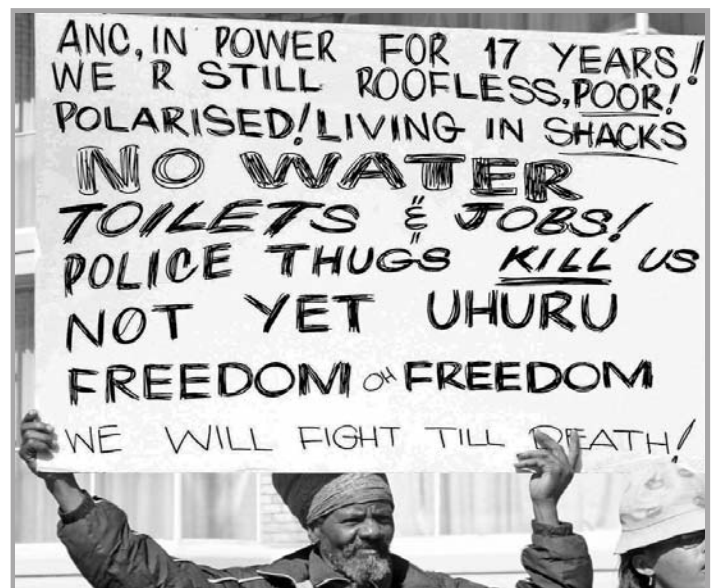 ANC, IN POWER FOR 17 YEARS!
WE R STILL ROOFLESS, POOR!
POLARISED! LIVING IN SHACKS
NO WATER
TOILETS & JOBS!
POLICE THUGS KILL US
NOT YET UHURU
FREEDOM OH FREEDOM
WE WILL FIGHT TILL DEATH!